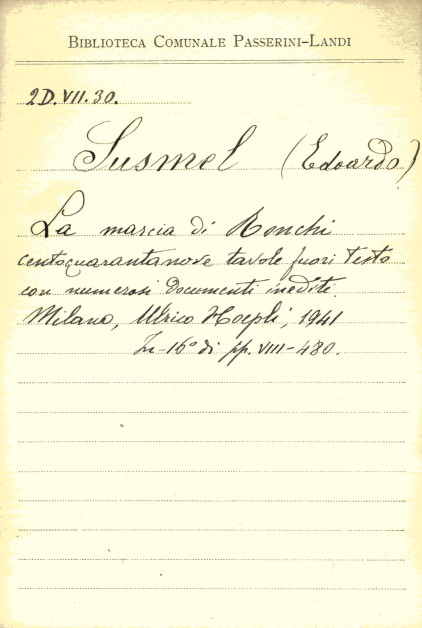 BIBLIOTECA COMUNALE PASSERINI-LANDI
2D.VII.30.
Susmel (Edoardo)
La marcia di Ronchi
centoquarantanove tavole fuori testo
con numerosi documenti inediti.
Milano, Ulrico Hoepli, 1941
In-16° di pp. VIII-480.